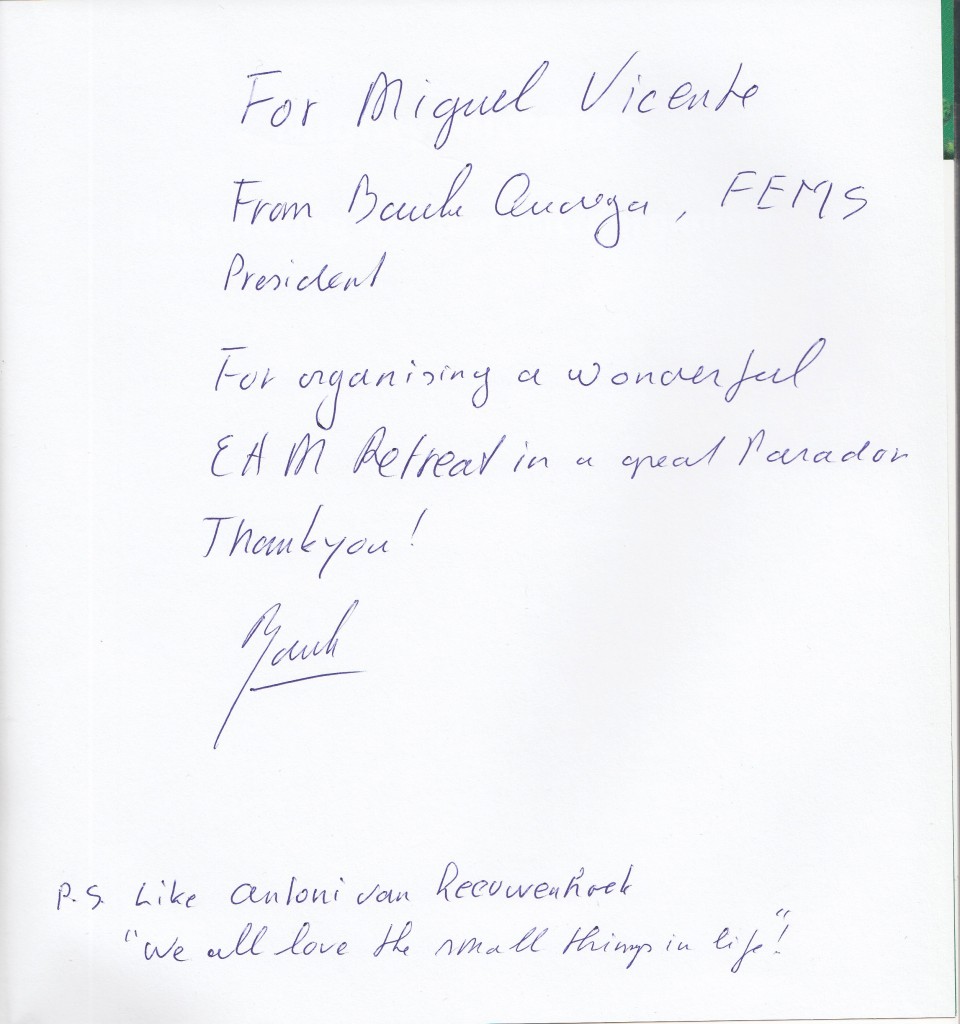 For Miguel Vicente
From Bauke Oudega, FEMS
President
For organising a wonderful
EAM Retreat in a great Parador
Thank you!
Bauke
P.S. Like Antoni van Leeuwenhoek
"We all love the small things in life!"